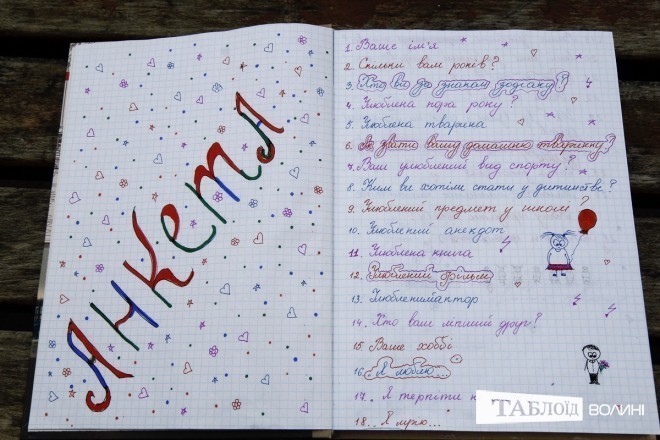 АНКЕТА
1. Ваше ім'я
2. Скільки вам років?
3. Хто ви за знаком зодіаку?
4. Улюблена пора року?
5. Улюблена тварина
6. Як звати вашу домашню тваринку?
7. Ваш улюблений вид спорту?
8. Ким ви хотіли стати у дитинстві?
9. Улюблений предмет у школі?
10. Улюблений анекдот
11. Улюблена книга
12. Улюблений фільм
13. Улюблений актор
14. Хто ваш ліпший друг?
15. Ваше хоббі
16. Я люблю
17. Я терпіти н
18. Я мрію...
ТАБлоїд ВОЛИНІ